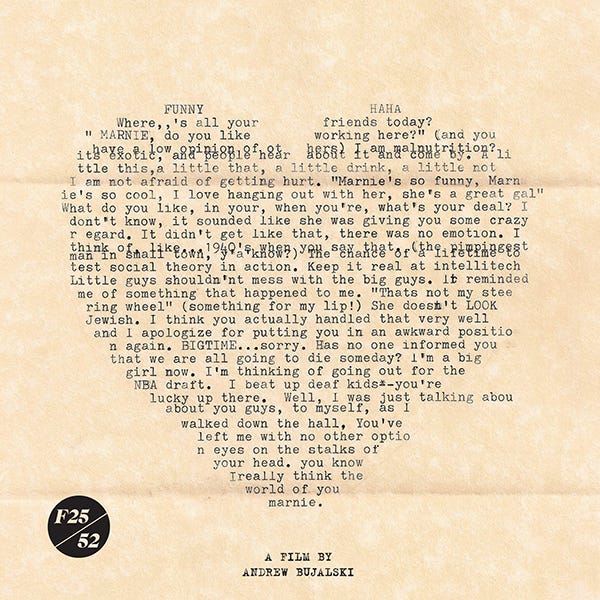 FUNNY HAHA
Where,,'s all your friends today?
" MARNIE, do you like working here?" (and you
have a low opinion of ot hers) I am malnutrition?
its exotic, and people hear about it and come by. A li
ttle this,a little that, a little drink, a little not
I am not afraid of getting hurt. "Marnie's so funny, Marn
ie's so cool, I love hanging out with her, she's a great gal"
What do you like, in your, when you're, what's your deal? I
dont't know, it sounded like she was giving you some crazy
r egard. It didn't get like that, there was no emotion. I
think of, like.. 1940's when you say that. (the pimpingest
man in small town, y'a know?) The chance of a lifetime to
test social theory in action. Keep it real at intellitech
Little guys shouldn'nt mess with the big guys. It reminded
me of something that happened to me. "Thats not my stee
ring wheel" (something for my lip!) She doesn't LOOK
Jewish. I think you actually handled that very well
and I apologize for putting you in an awkward positio
n again. BIGTIME...sorry. Has no one informed you
that we are all going to die someday? I'm a big
girl now. I'm thinking of going out for the
NBA draft. I beat up deaf kids--you're
lucky up there. Well, I was just talking abou
about you guys, to myself, as I
walked down the hall, You've
left me with no other optio
n eyes on the stalks of
your head. you know
Ireally think the
world of you
marnie.
F25/52
A FILM BY
ANDREW BUJALSKI